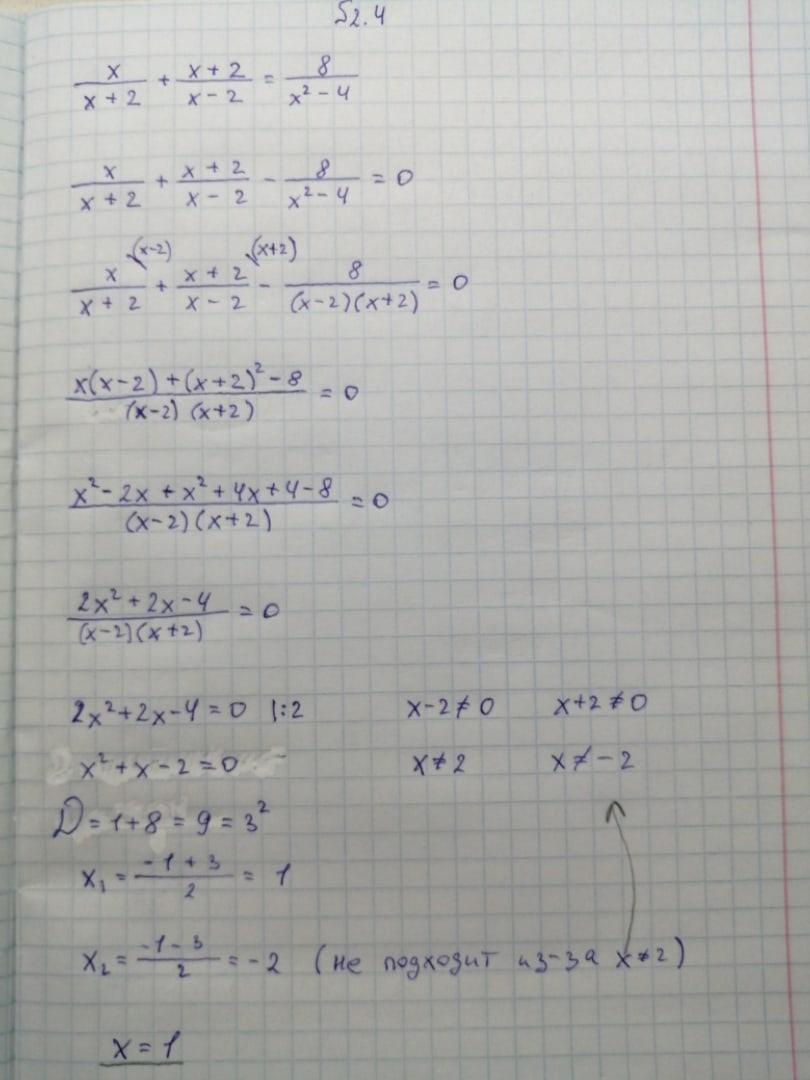 §2.4
x/(x + 2) + (x + 2)/(x - 2) = 8/(x² - 4)
x/(x + 2) + (x + 2)/(x - 2) - 8/(x² - 4) = 0
x/(x + 2) \(x-2) + (x + 2)/(x - 2) \(x+2) - 8/((x-2)(x+2)) = 0
(x(x-2) + (x+2)² - 8)/((x-2)(x+2)) = 0
(x² - 2x + x² + 4x + 4 - 8)/((x-2)(x+2)) = 0
(2x² + 2x - 4)/((x-2)(x+2)) = 0
2x² + 2x - 4 = 0 |:2 x - 2 ≠ 0 x + 2 ≠ 0
x² + x - 2 = 0 x ≠ 2 x ≠ - 2
D = 1 + 8 = 9 = 3²
x₁ = (-1 + 3)/2 = 1
x₂ = (-1 - 3)/2 = -2 (не подходит из-за x ≠ 2)
x = 1